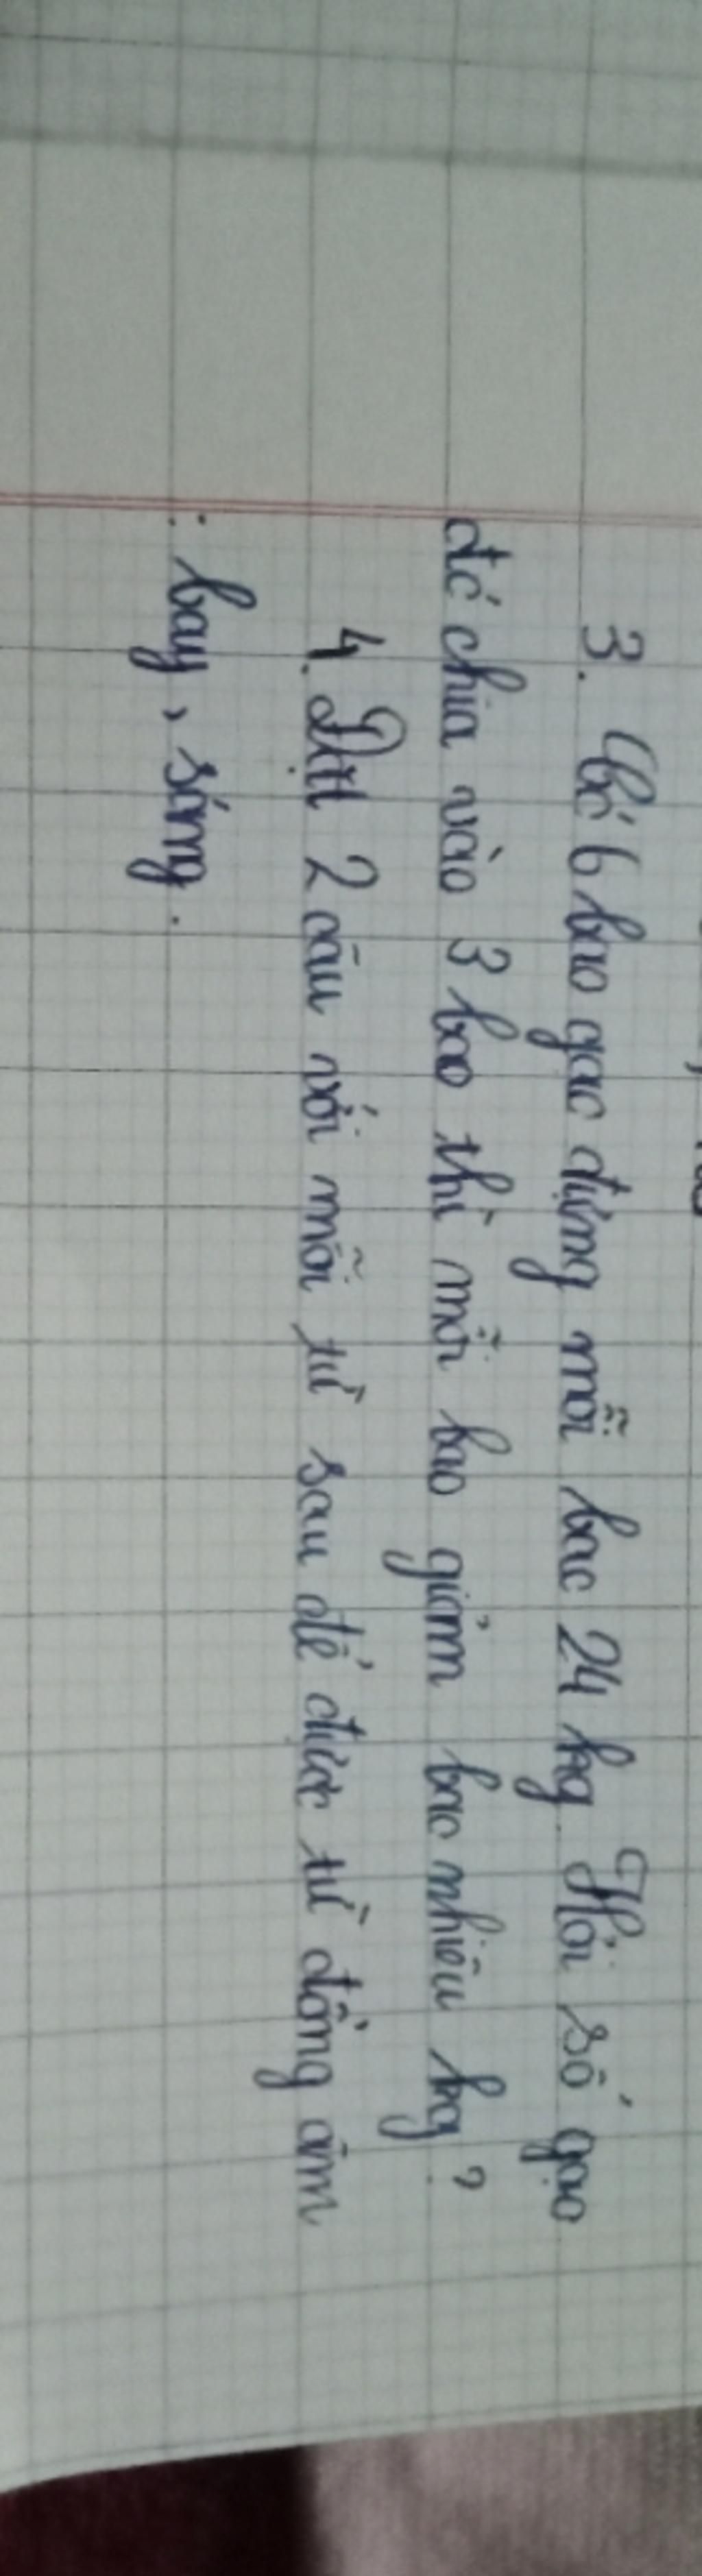 3. Có 6 bao gạo đựng mỗi bao 24 kg. Hỏi số gạo
đó chia vào 3 bao thì mỗi bao giảm bao nhiêu kg?
4. Đặt 2 câu với mỗi từ sau để được từ đồng âm
: bay, sáng.